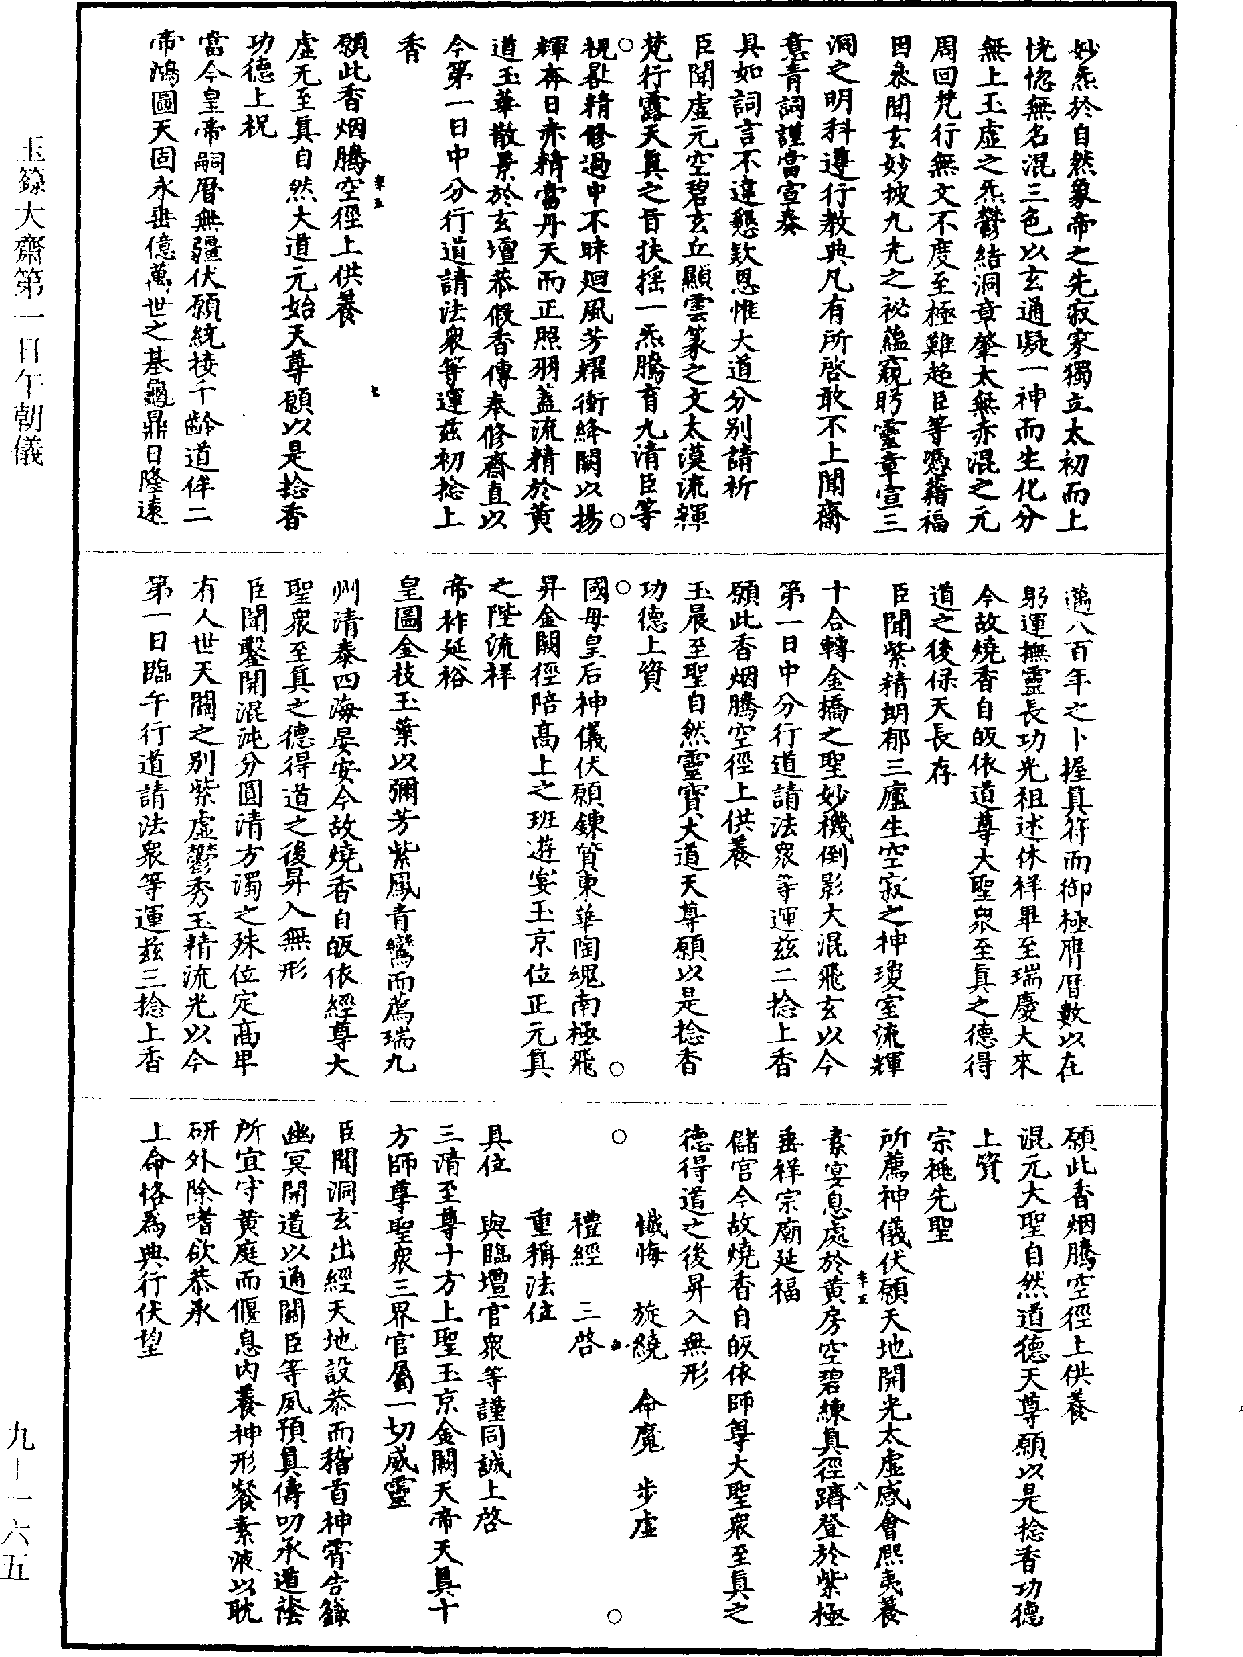 妙炁於自然象帝之先寂寥獨立太初而上
恍惚無名混三色以玄通凝一神而生化分
無上玉虛之炁鬱結洞章肇太無赤混之元
周回梵行無文不度至極難超臣等憑藉福
因叅聞玄妙披九光之祕蘊窺眄靈章宣三
洞之明科遵行教典凡有所啓敢不上聞齋
意青詞謹當宣奏
具如詞言不違懇欵恩惟大道分別請祈
臣聞虛元空碧玄丘顯雲篆之文太漠流輝
梵行露天真之旨扶搖一炁騰育九清臣等
視晷精修過中不昧廻風芳耀衝絳闕以揚
輝奔日赤精當丹天而正照羽蓋流精於黃
道玉華散景於玄壇恭假香傳奉修齋直以
今第一日中分行道請法衆等運茲初捻上
香
願此香烟騰空徑上供養
虛无至真自然大道元始天尊願以是捻香
功德上祝
當今皇帝嗣曆無疆伏願統接千齡道侔二
帝鴻圖天固永垂億萬世之基龜鼎日隆遠
邁八百年之卜握真符而御極膺曆數以在
躬運撫靈長功光祖述休祥畢至瑞慶大來
今故燒香自皈依道尊大聖衆至真之德得
道之後保天長存
臣聞紫精朗郁三廬生空寂之神瓊室流輝
十合轉金撟之聖妙機倒影大混飛玄以今
第一日中分行道請法衆等運茲二捻上香
願此香烟騰空徑上供養
玉晨至聖自然靈寶大道天尊願以是捻香
功德上資
國母皇后神儀伏願鍊質東華陶魂南極飛
昇金闕徑陪高上之班遊宴玉京位正元真
之陛流祥
帝祚延裕
皇圖金枝玉葉以彌芳紫鳳青鸞而薦瑞九
州清泰四海晏安今故燒香自皈依經尊大
聖衆至真之德得道之後昇入無形
臣聞鑿開混沌分圓清方濁之殊位定高卑
有人世天關之別紫虛鬱秀玉精流光以今
第一日臨午行道請法衆等運茲三捻上香
願此香烟騰空徑上供養
混元大聖自然道德天尊願以是捻香功德
上資
宗祧先聖
所薦神儀伏願天地開光太虛感會熙夷養
素宴息處於黃房空碧練真徑躋登於紫極
垂祥宗廟延福
儲宮今故燒香自皈依師尊大聖衆至真之
德得道之後昇入無形
懺悔　旋繞　命魔　步虛
禮經　三啓
重稱法位
具位　與臨壇官衆等謹同誠上啓
三清至尊十方上聖玉京金闕天帝天真十
方師尊聖衆三界官屬一切威靈
臣聞洞玄出經天地設恭而稽首神霄告籙
幽冥開道以通關臣等夙預真傳叨承道蔭
所宜守黃庭而偃息內養神形餐素液以耽
研外除嗜欲恭承
上命恪為典行伏望
玉籙大齋第一日午朝儀
九－一六五